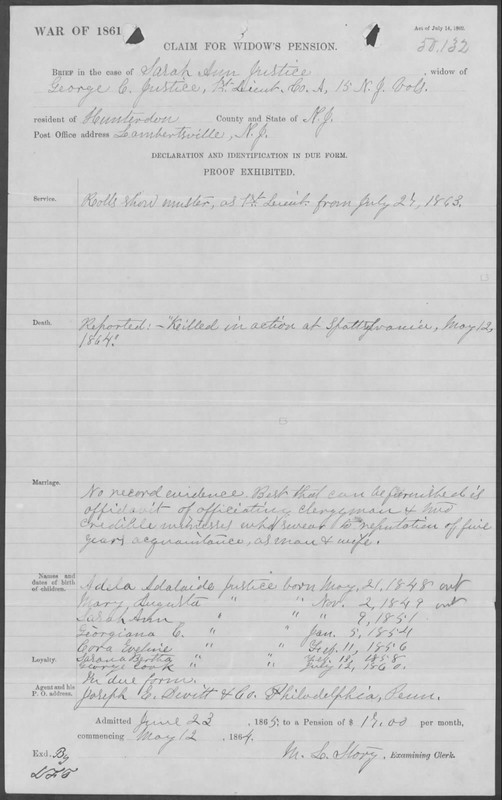 WAR OF 1861
Act of July 14, 1862.
CLAIM FOR WIDOW'S PENSION.
50.132
BRIEF in the case of Sarah Ann Justice, widow of
George C. Justice, 1st Lieut. Co. A, 15 N. J. Vols.
resident of Hunterdon County and State of N. J.
Post Office address Lambertsville, N. J.
DECLARATION AND IDENTIFICATION IN DUE FORM.
PROOF EXHIBITED.
Service. Rolls show muster, as 1st Lieut. from July 27, 1863.
Death. Reported: - "Killed in action at Spottsylvania, May 12,
1864."
Marriage.
No record evidence. Best that can be furnished is
affidavit of officiating clergyman & two
credible witnesses who swear to reputation of five
years acquaintance, as man & wife.
Names and dates of birth of children.
Adelaide Justice born May, 21, 1848 out
Mary Augusta " " Nov. 2, 1849 out
Sarah Ann " " " 9, 1851
Georgiana C. " " Jan. 5, 1854
Cora Eveline " " 11, 1856
Sarana Bertha " " 1858
George " " July 12, 1860.
Loyalty. In due form.
Agent and his P. O. address. Joseph E. Devitt & Co. Philadelphia, Penn.
Admitted June 23, 1865, to a Pension of $ 17.00 per month,
commencing May 12, 1864.
Exd. By
M. L. Story, Examining Clerk.